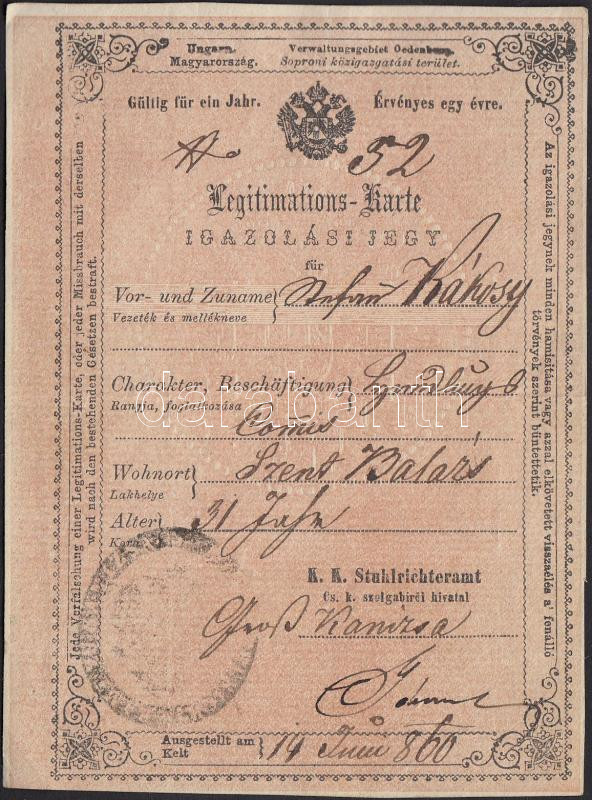 Ungarn. Verwaltungsgebiet Oedenburg.
Magyarország. Soproni közigazgatási terület.
Gültig für ein Jahr. Érvényes egy évre.
No 52
Legitimations-Karte
IGAZOLÁSI JEGY
für
Vor- und Zuname Stefan Kákosy
Vezeték és mellékneve
Charakter, Beschäftigung
Rangja, foglalkozása
Comis
Wohnort Szent Balázs
Lakhelye
Alter 31 Jahr
Kora
K. K. Stuhlrichteramt
Cs. k. szolgabirói hivatal
Groß Kanizsa
Ausgestellt am 14 Juni 860
Kelt
Jede Verfälschung einer Legitimations-Karte, oder jeder Missbrauch mit derselben
wird nach den bestehenden Gesetzen bestraft.
Az igazolási jegynek minden hamisitása vagy azzal elkövetett visszaélés a' fenálló
törvények szerint büntettetik.
darabanth